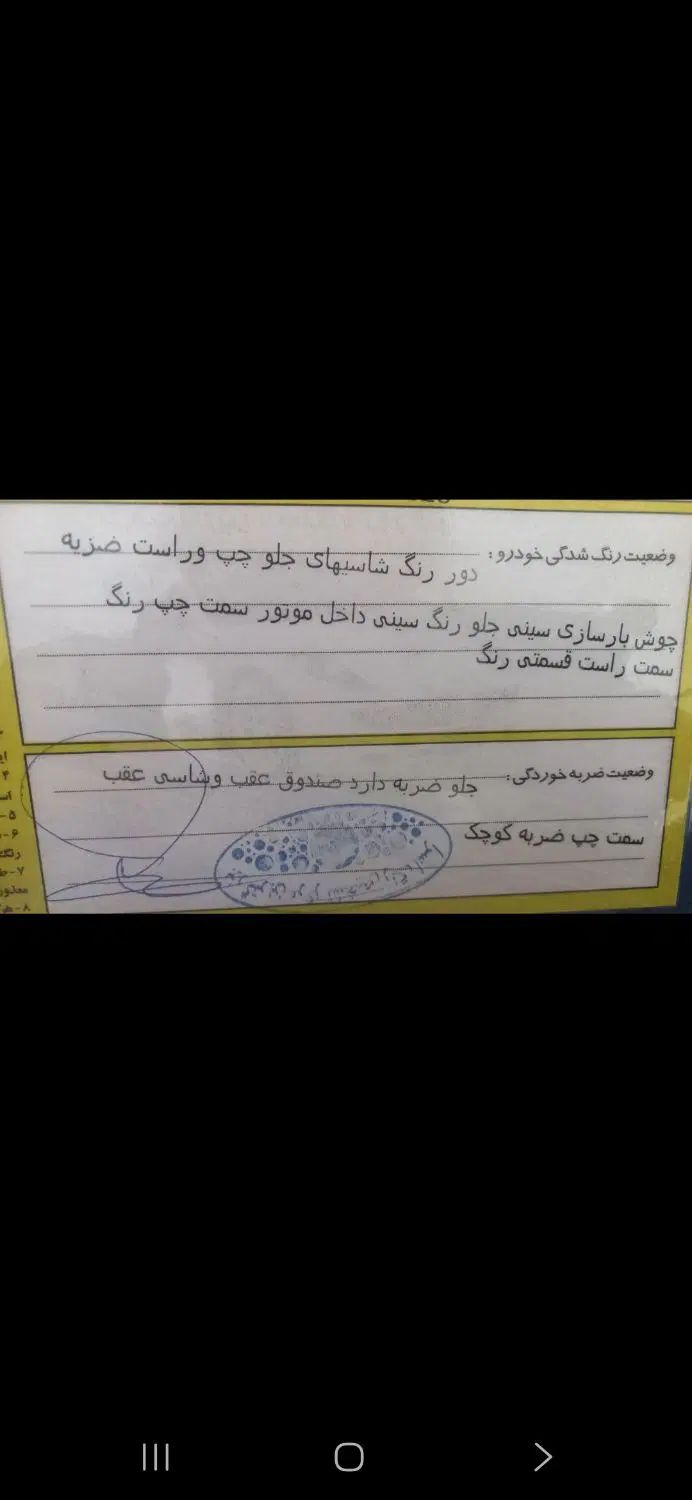 وضعیت رنگ شدگی خودرو :
دور رنگ شاسیهای جلو چپ وراست ضزیه
چوش بارسازی سینی جلو رنگ سینی داخل موتور سمت چپ رنگ
سمت راست قسمتی رنگ
وضعیت ضربه خوردگی :
جلو ضربه دارد صندوق عقب وشاسی عقب
سمت چپ ضربه کوچک
۴
۵-
۶-
رنگ
۷-
معذور
۸-